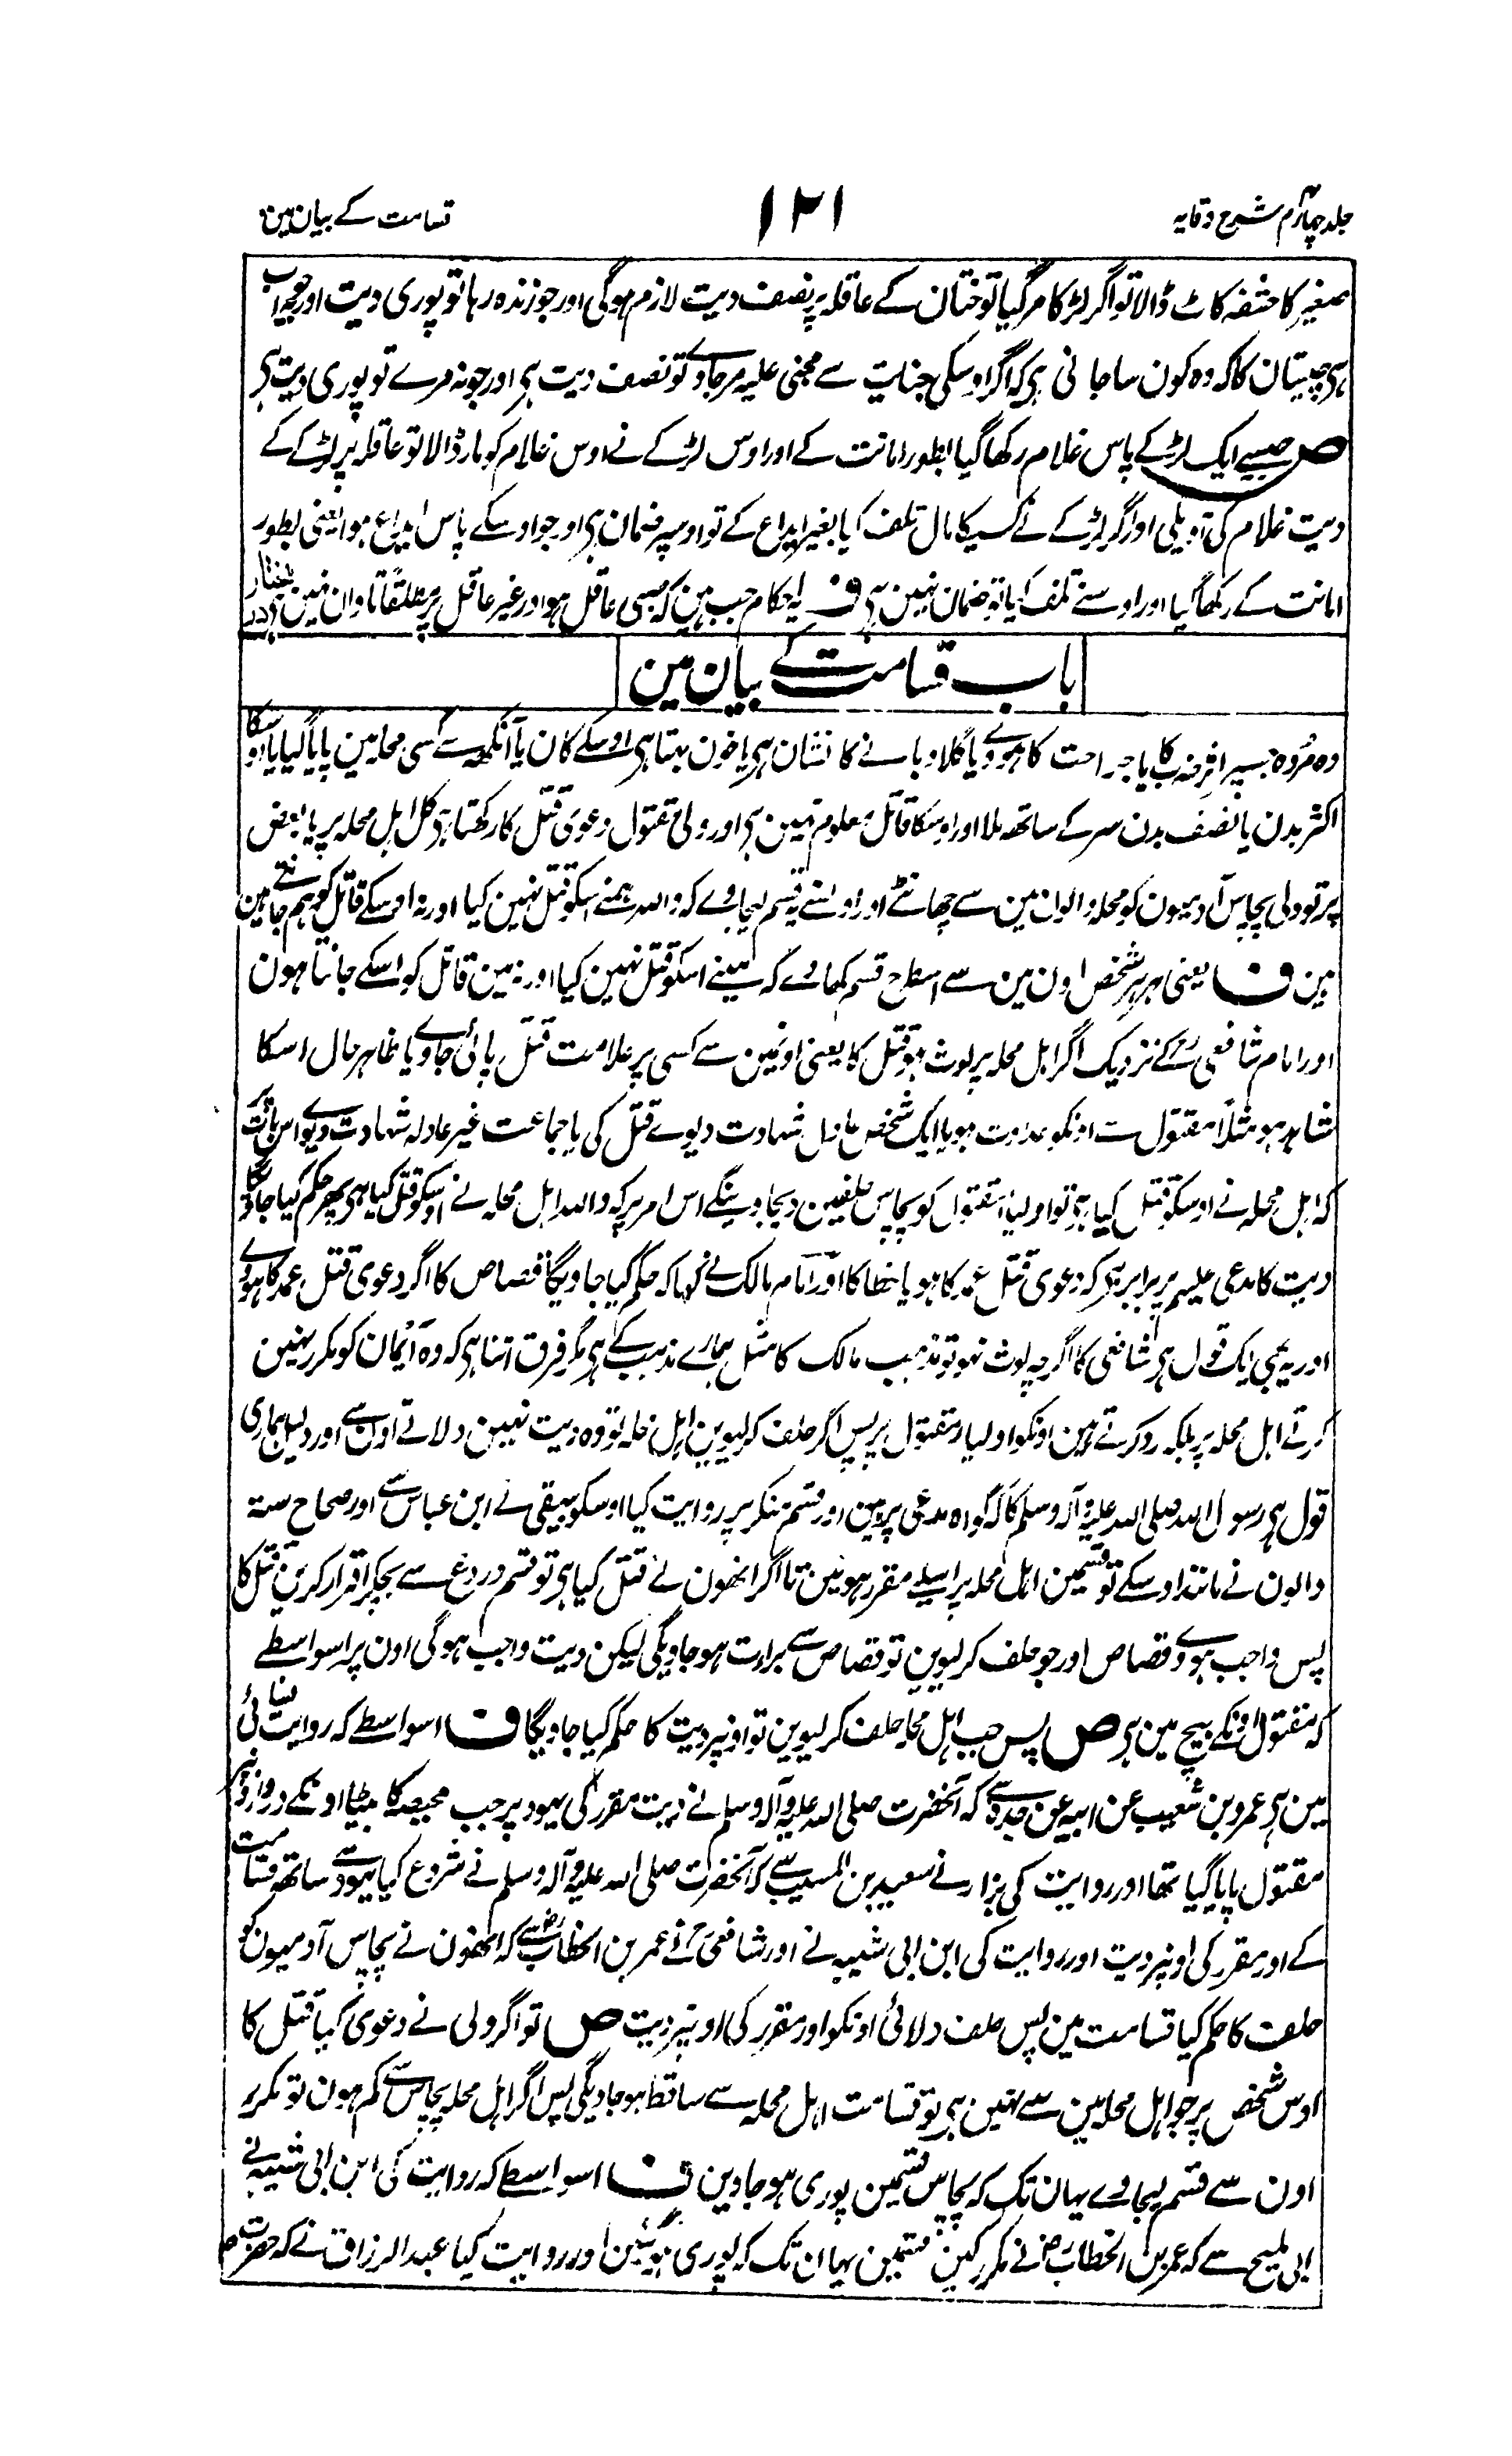 جلد چہارم شرح وقایہ
۱۲۱
قسامت کے بیان مین
صغیر کا حشفہ کاٹ ڈالا تو اگر لڑکا مر گیا تو ختان کے عاقلہ پر نصف دیت لازم ہوگی اور جو زندہ رہا تو پوری دیت اور یہ جواب
ہی چیستان کا کہ وہ کون سا جانی ہی کہ اگر اوسکی جنایت سے مجنی علیہ مر جاوے تو نصف دیت ہی اور جو نہ مرے تو پوری دیت ہی
ص جیسے ایک لڑکے پاس غلام رکھا گیا بطور امانت کے اور اوس لڑکے نے اوس غلام کو مار ڈالا تو عاقلہ پر لڑکے کے
دیت غلام کی آویگی اور اگر لڑکے نے کسیکا مال تلف کیا بغیر ایداع کے تو اوسپر ضمان ہی اور جو اوسکے پاس ایداع ہوا یعنی بطور
امانت کے رکھا گیا اور اوسنے تلف کیا تو ضمان نہین ہی ف یہ احکام جب ہین کہ صبی عاقل ہو اور غیر عاقل پر مطلقاً تاوان نہین در مختار
باب قسامت کے بیان مین
وہ مُردہ جسپر اثر ضرب کا یا جراحت کا ہووے یا گلا دبانے کا نشان ہی یا خون بہتا ہی اوسکے کان یا آنکھ سے کسی محلہ مین پایا گیا یا اوسکا
اکثر بدن یا نصف بدن سر کے ساتھ ملا اور اوسکا قاتل معلوم نہین ہی اور ولی مقتول دعوی قتل کا رکھتا ہی کل اہل محلہ پر یا بعض
پر تو ولی پچاس آدمیون کو محلہ والون مین سے چھانٹے اور اونسے یہ قسم لیجاوے کہ واللہ ہمنے اسکو قتل نہین کیا اور نہ اوسکے قاتل کو ہم جانتے ہین
مین ف یعنی ہر ہر شخص اون مین سے اسطرح قسم کھاوے کہ مینے اسکو قتل نہین کیا اور نہ مین قاتل کو اسکے جانتا ہون
اور امام شافعی رح کے نزدیک اگر اہل محلہ پر لوث ہو قتل کا یعنی اونمین سے کسی پر علامت قتل پائی جاوے یا ظاہر حال اسکا
شاہد ہو مثلاً مقتول سے اونکو عداوت ہو یا ایک شخص عادل شہادت دیوے قتل کی یا جماعت غیر عادلہ شہادت دیوے اس بات پر
کہ اہل محلہ نے اوسکو قتل کیا ہی تو اولیاء مقتول کو پچاس حلفین دیجاوینگے اس امر پر کہ واللہ اہل محلہ نے اوسکو قتل کیا ہی پھر حکم کیا جاویگا
دیت کا مدعی علیہم پر برابر ہی کہ دعوی قتل عمد کا ہو یا خطا کا اور امام مالک نے کہا کہ حکم کیا جاویگا قصاص کا اگر دعوی قتل عمد کا ہووے
اور یہ بھی ایک قول ہی شافعی کا اگرچہ لوث نہو تو مذہب مالک کا مثل ہمارے مذہب کے ہی مگر فرق اتنا ہی کہ وہ اَیْمان کو مکرر نہین
کرتے اہل محلہ پر بلکہ رد کرتے ہین اونکو اولیاء مقتول پر پس اگر حلف کر لیوین اہل محلہ تو وہ دیت نہین دلاتے اون سے اور دلیل ہماری
قول ہی رسول اللہ صلی اللہ علیہ وآلہ وسلم کا کہ گواہ مدعی پر ہین اور قسم منکر پر روایت کیا اوسکو بیہقی نے ابن عباس سے اور صحاح ستہ
والون نے مانند اوسکے تو قسمین اہل محلہ پر اسلیے مقرر ہوئین تا اگر انھون نے قتل کیا ہی تو قسم دروغ سے بچکر اقرار کرین قتل کا
پس واجب ہووے قصاص اور جو حلف کر لیوین تو قصاص سے براءت ہو جاویگی لیکن دیت واجب ہوگی اون پر اسواسطے
کہ مقتول اونکے بیچ مین ہی ص پس جب اہل محلہ حلف کر لیوین تو اونپر دیت کا حکم کیا جاویگا ف اسواسطے کہ روایت نسائی
مین ہی عمرو بن شعیب عن ابیہ عن جدہ سے کہ آنحضرت صلی اللہ علیہ وآلہ وسلم نے دیت مقرر کی یہود پر جب محیصہ کا بیٹا اونکے دروازونپر
مقتول پایا گیا تھا اور روایت کی بزار نے سعید بن المسیب سے کہ آنحضرت صلی اللہ علیہ وآلہ وسلم نے شروع کیا یہود سے ساتھ قسامت
کے اور مقرر کی اونپر دیت اور روایت کی ابن ابی شیبہ نے اور شافعی رح نے عمر بن الخطاب رض سے کہ انھون نے پچاس آدمیون کو
حلف کا حکم کیا قسامت مین پس حلف دلائی اونکو اور مقرر کی اونپر دیت ص تو اگر ولی نے دعوی کیا قتل کا
اوس شخص پر جو اہل محلہ مین سے نہین ہی تو قسامت اہل محلہ سے ساقط ہو جاویگی پس اگر اہل محلہ پچاس سے کم ہون تو مکرر
اون سے قسم لیجاوے یہان تک کہ پچاس قسمین پوری ہو جاوین ف اسواسطے کہ روایت کی ابن ابی شیبہ نے
ابی ملیح سے کہ عمر بن الخطاب رض نے مکرر کین قسمین یہان تک کہ پوری ہوئین اور روایت کیا عبدالرزاق نے کہ حضرت